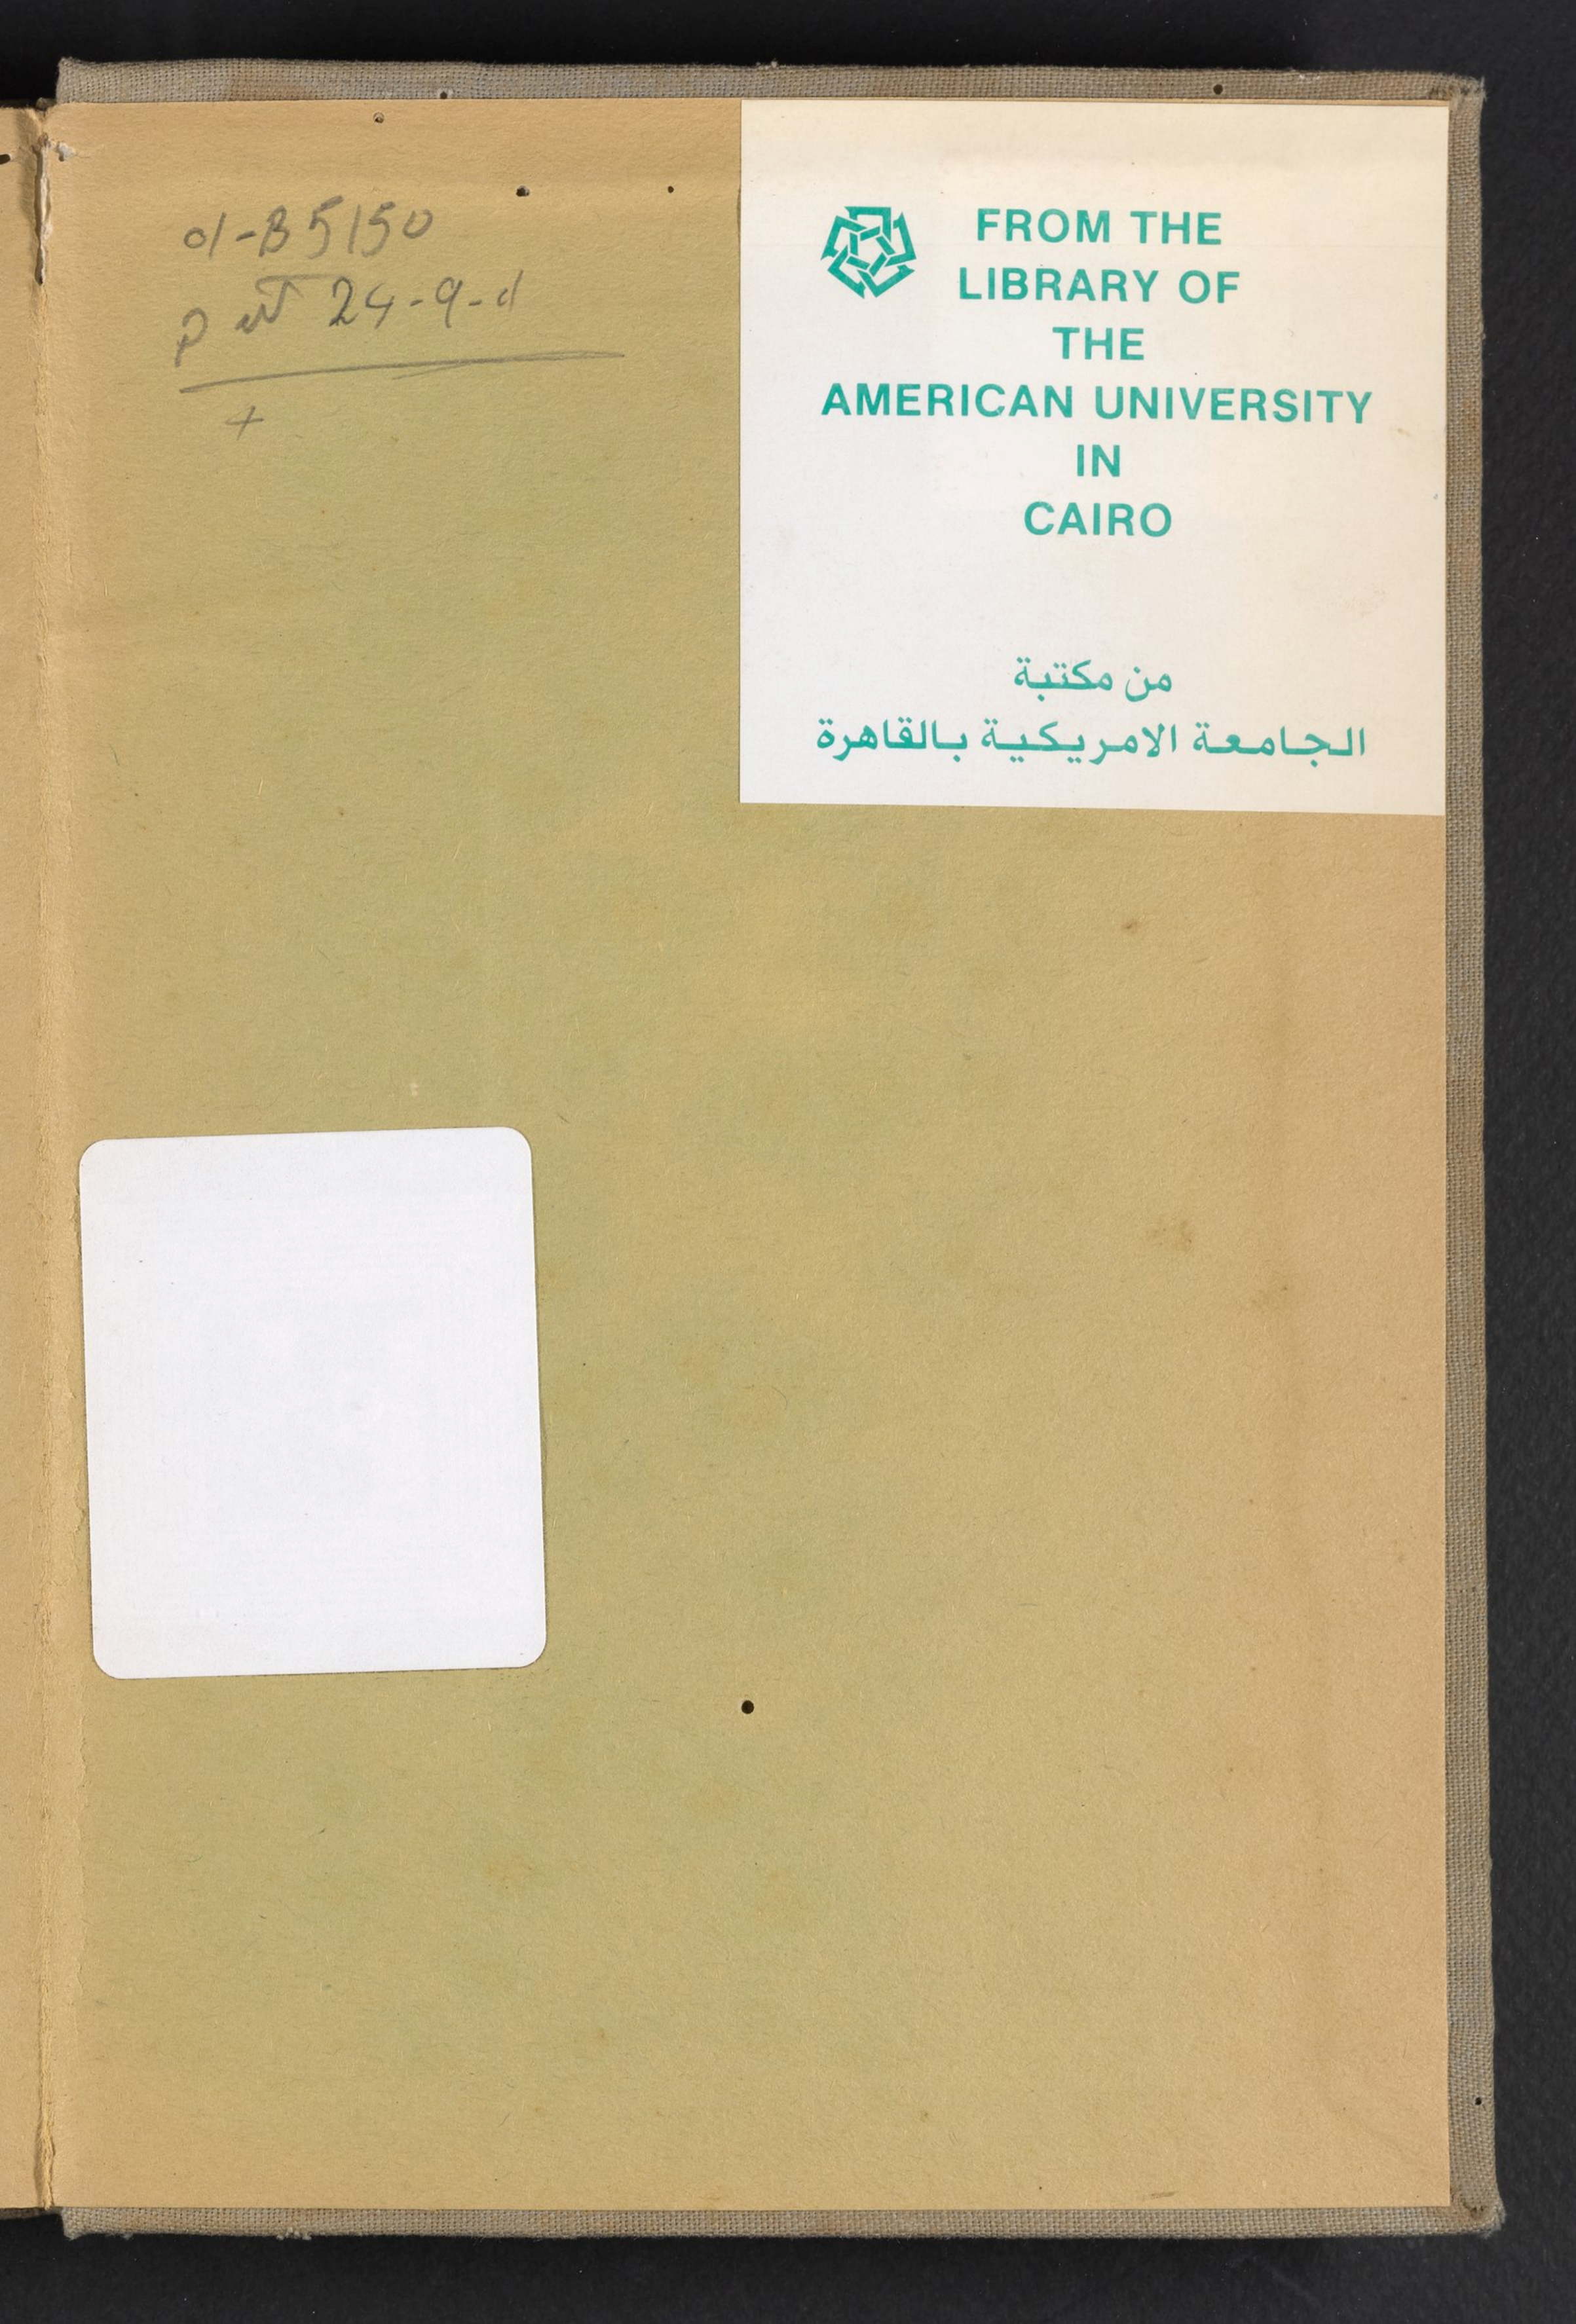 d-B5150
24-9-d
FROM THE
LIBRARY OF
THE
AMERICAN UNIVERSITY
IN
CAIRO
من مكتبة
الجامعة الامريكية بالقاهرة